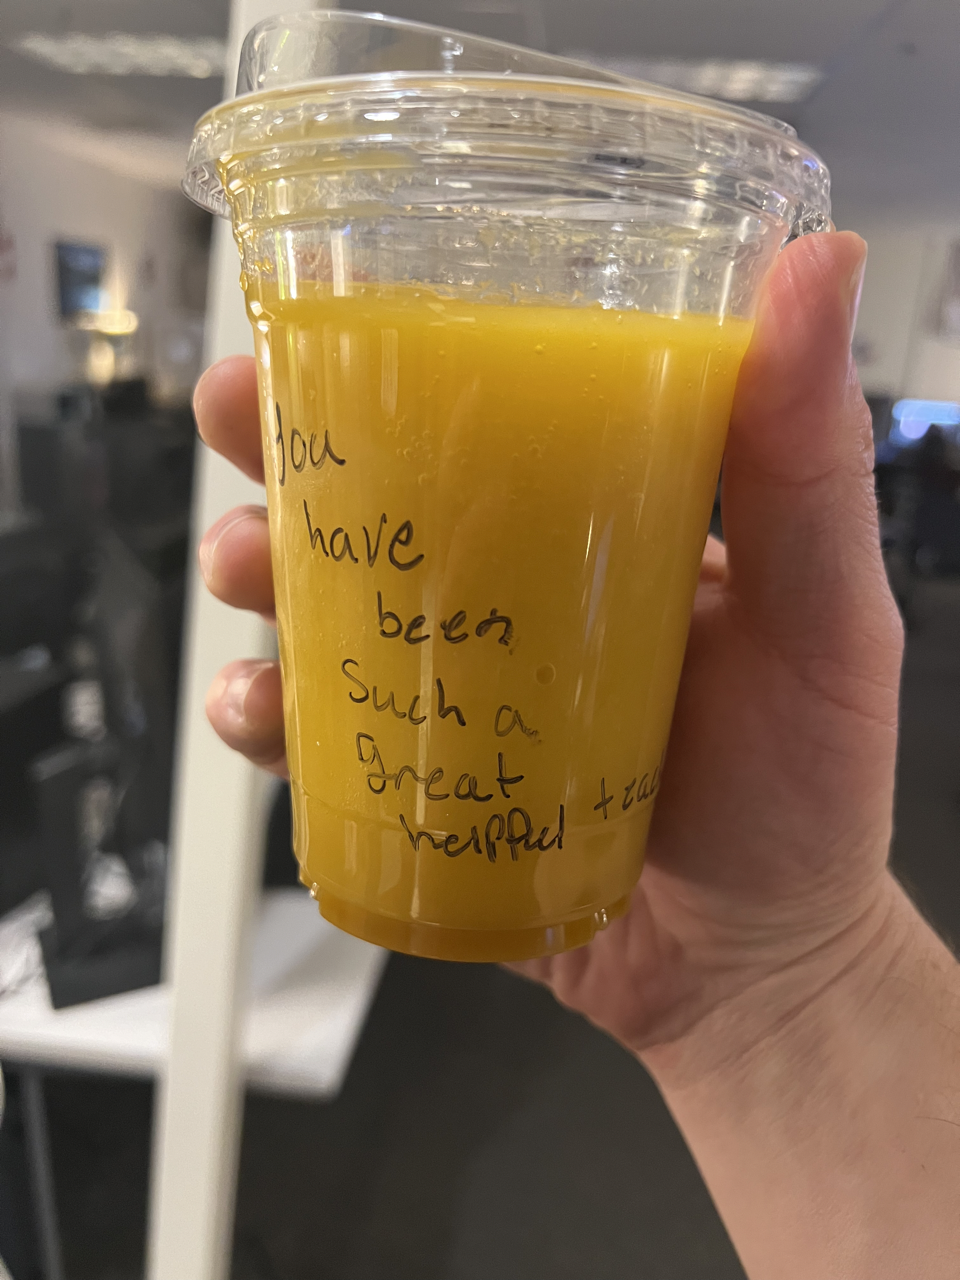 you
have
been
Such a
great
helpful